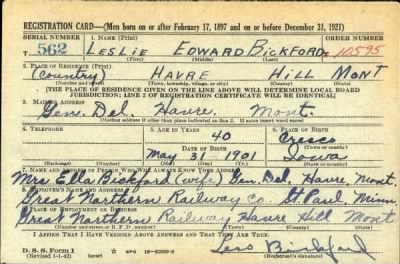 REGISTRATION CARD—(Men born on or after February 17, 1897 and on or before December 31, 1921)
SERIAL NUMBER 1. NAME (Print) ORDER NUMBER
T 562 LESLIE EDWARD BICKFORD 10595
(First) (Middle) (Last)
2. PLACE OF RESIDENCE (Print)
(Country) HAVRE HILL MONT
(Number and street) (Town, township, village, or city) (County) (State)
[THE PLACE OF RESIDENCE GIVEN ON THE LINE ABOVE WILL DETERMINE LOCAL BOARD
JURISDICTION; LINE 2 OF REGISTRATION CERTIFICATE WILL BE IDENTICAL]
3. MAILING ADDRESS
Gen. Del. Havre, Mont.
[Mailing address if other than place indicated on line 2. If same insert word same]
4. TELEPHONE 5. AGE IN YEARS 6. PLACE OF BIRTH
40 Cresco
DATE OF BIRTH (Town or county)
May 31 1901 Iowa
(Exchange) (Number) (Mo.) (Day) (Yr.) (State or country)
7. NAME AND ADDRESS OF PERSON WHO WILL ALWAYS KNOW YOUR ADDRESS
Mrs. Ella Bickford (wife) Gen. Del. Havre, Mont.
8. EMPLOYER'S NAME AND ADDRESS
Great Northern Railway Co. St Paul, Minn.
9. PLACE OF EMPLOYMENT OR BUSINESS
Great Northern Railway Havre Hill Mont
(Number and street or R. F. D. number) (Town) (County) (State)
I AFFIRM THAT I HAVE VERIFIED ABOVE ANSWERS AND THAT THEY ARE TRUE.
D. S. S. Form 1
(Revised 1-1-42) (over)
Bickford